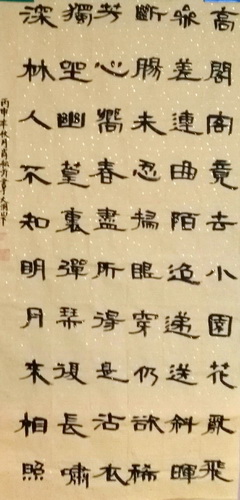 高閣客竟去小園花亂飛
參差連曲陌迢遞送斜暉
斷腸未忍掃眼穿仍欲稀
芳心嚮春盡所得是沾衣
獨坐幽篁裏彈琴復長嘯
深林人不知明月來相照
丙申年秋月